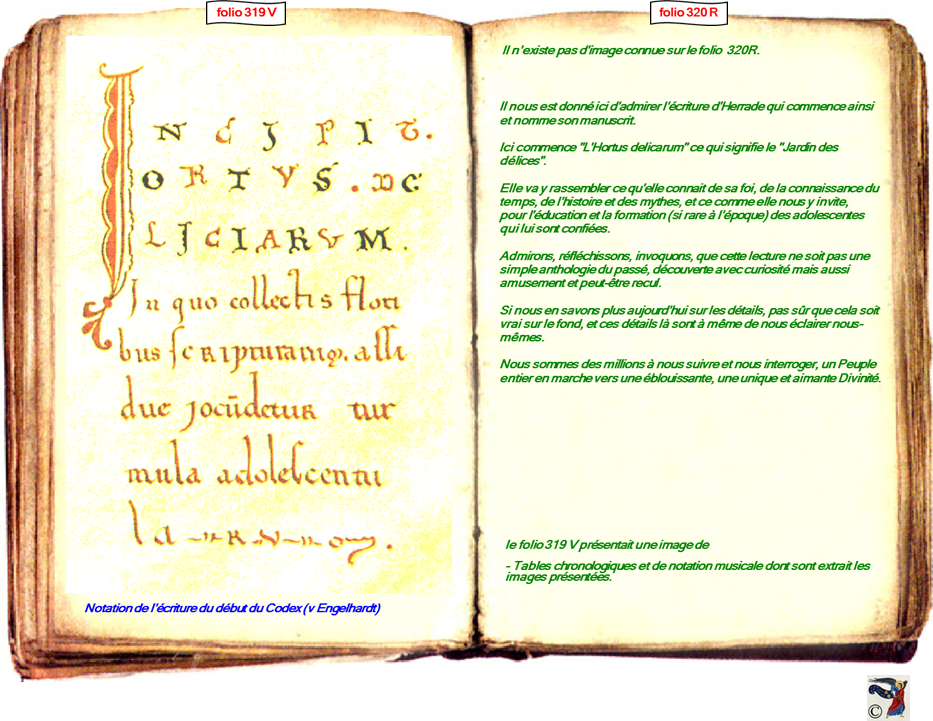 folio 319 V
INCIPIT.
ORTVS. DE
LICIARVM.
In quo collectis flori
bus scripturarūq, assi
due jocūdetur tur
mula adolescentu
la
Notation de l'écriture du début du Codex (v Engelhardt)
folio 320 R
Il n'existe pas d'image connue sur le folio 320R.
Il nous est donné ici d'admirer l'écriture d'Herrade qui commence ainsi
et nomme son manuscrit.
Ici commence "L'Hortus delicarum" ce qui signifie le "Jardin des
délices".
Elle va y rassembler ce qu'elle connait de sa foi, de la connaissance du
temps, de l'histoire et des mythes, et ce comme elle nous y invite,
pour l'éducation et la formation (si rare à l'époque) des adolescentes
qui lui sont confiées.
Admirons, réfléchissons, invoquons, que cette lecture ne soit pas une
simple anthologie du passé, découverte avec curiosité mais aussi
amusement et peut-être recul.
Si nous en savons plus aujourd'hui sur les détails, pas sûr que cela soit
vrai sur le fond, et ces détails là sont à même de nous éclairer nous-
mêmes.
Nous sommes des millions à nous suivre et nous interroger, un Peuple
entier en marche vers une éblouissante, une unique et aimante Divinité.
le folio 319 V présentait une image de
- Tables chronologiques et de notation musicale dont sont extrait les
images présentées.
©